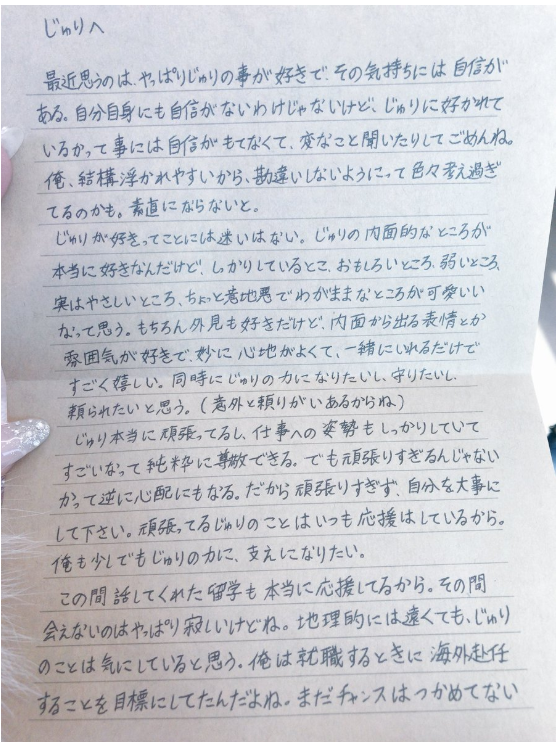 じゅりへ
最近思うのは、やっぱりじゅりの事が好きで、その気持ちには自信が
ある。自分自身にも自信がないわけじゃないけど、じゅりに好かれて
いるかって事には自信がもてなくて、変なこと聞いたりしてごめんね。
俺、結構浮かれやすいから、勘違いしないようにって色々考え過ぎ
てるのかも。素直にならないと。
じゅりが好きってことには迷いはない。じゅりの内面的なところが
本当に好きなんだけど、しっかりしているとこ、おもしろいところ、弱いところ、
実はやさしいところ、ちょっと意地悪でわがままなところが可愛いい
なって思う。もちろん外見も好きだけど、内面から出る表情とか
雰囲気が好きで、妙に心地がよくて、一緒にいれるだけで
すごく嬉しい。同時にじゅりの力になりたいし、守りたいし、
頼られたいと思う。(意外と頼りがいあるからね)
じゅり本当に頑張ってるし、仕事への姿勢もしっかりしていて
すごいなって純粋に尊敬できる。でも頑張りすぎるんじゃない
かって逆に心配にもなる。だから頑張りすぎず、自分を大事に
して下さい。頑張ってるじゅりのことはいつも応援はしているから。
俺も少しでもじゅりの力に、支えになりたい。
この間話してくれた留学も本当に応援してるから。その間
会えないのはやっぱり寂しいけどね。地理的には遠くても、じゅり
のことは気にしていると思う。俺は就職するときに海外赴任
することを目標にしてたんだよね。まだチャンスはつかめてない